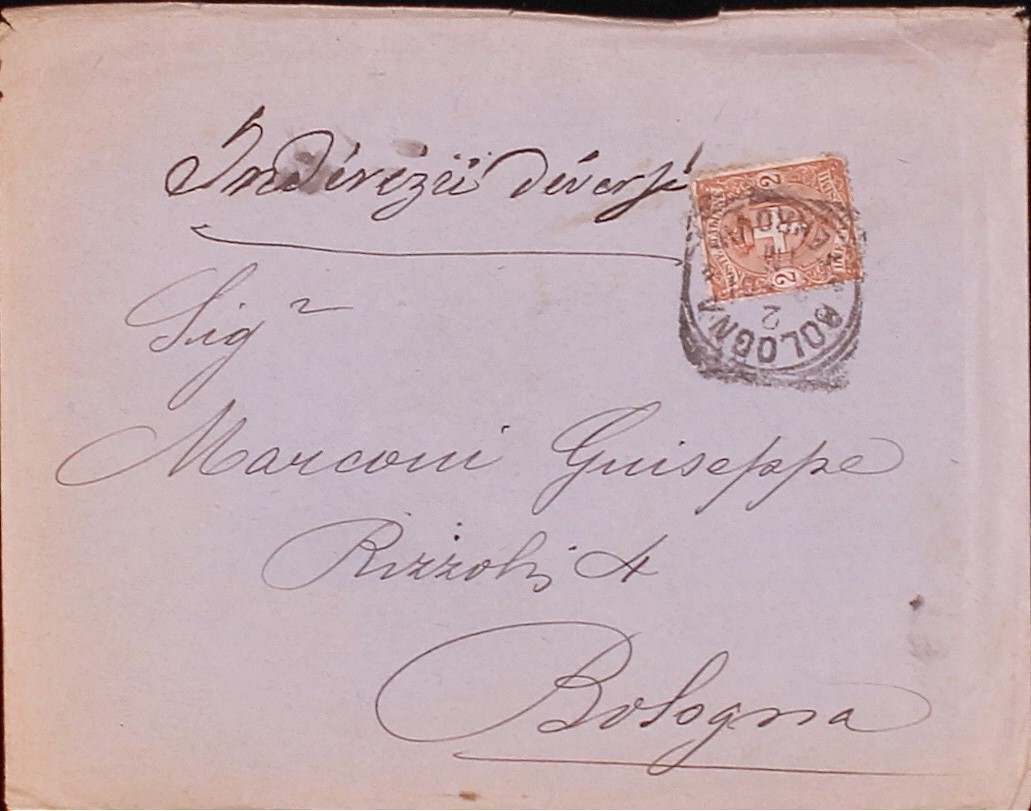 Indirizzi diversi
Sigr
Marconi Giuseppe
Rizzoli 4
Bologna
2
2
BOLOGNA
2